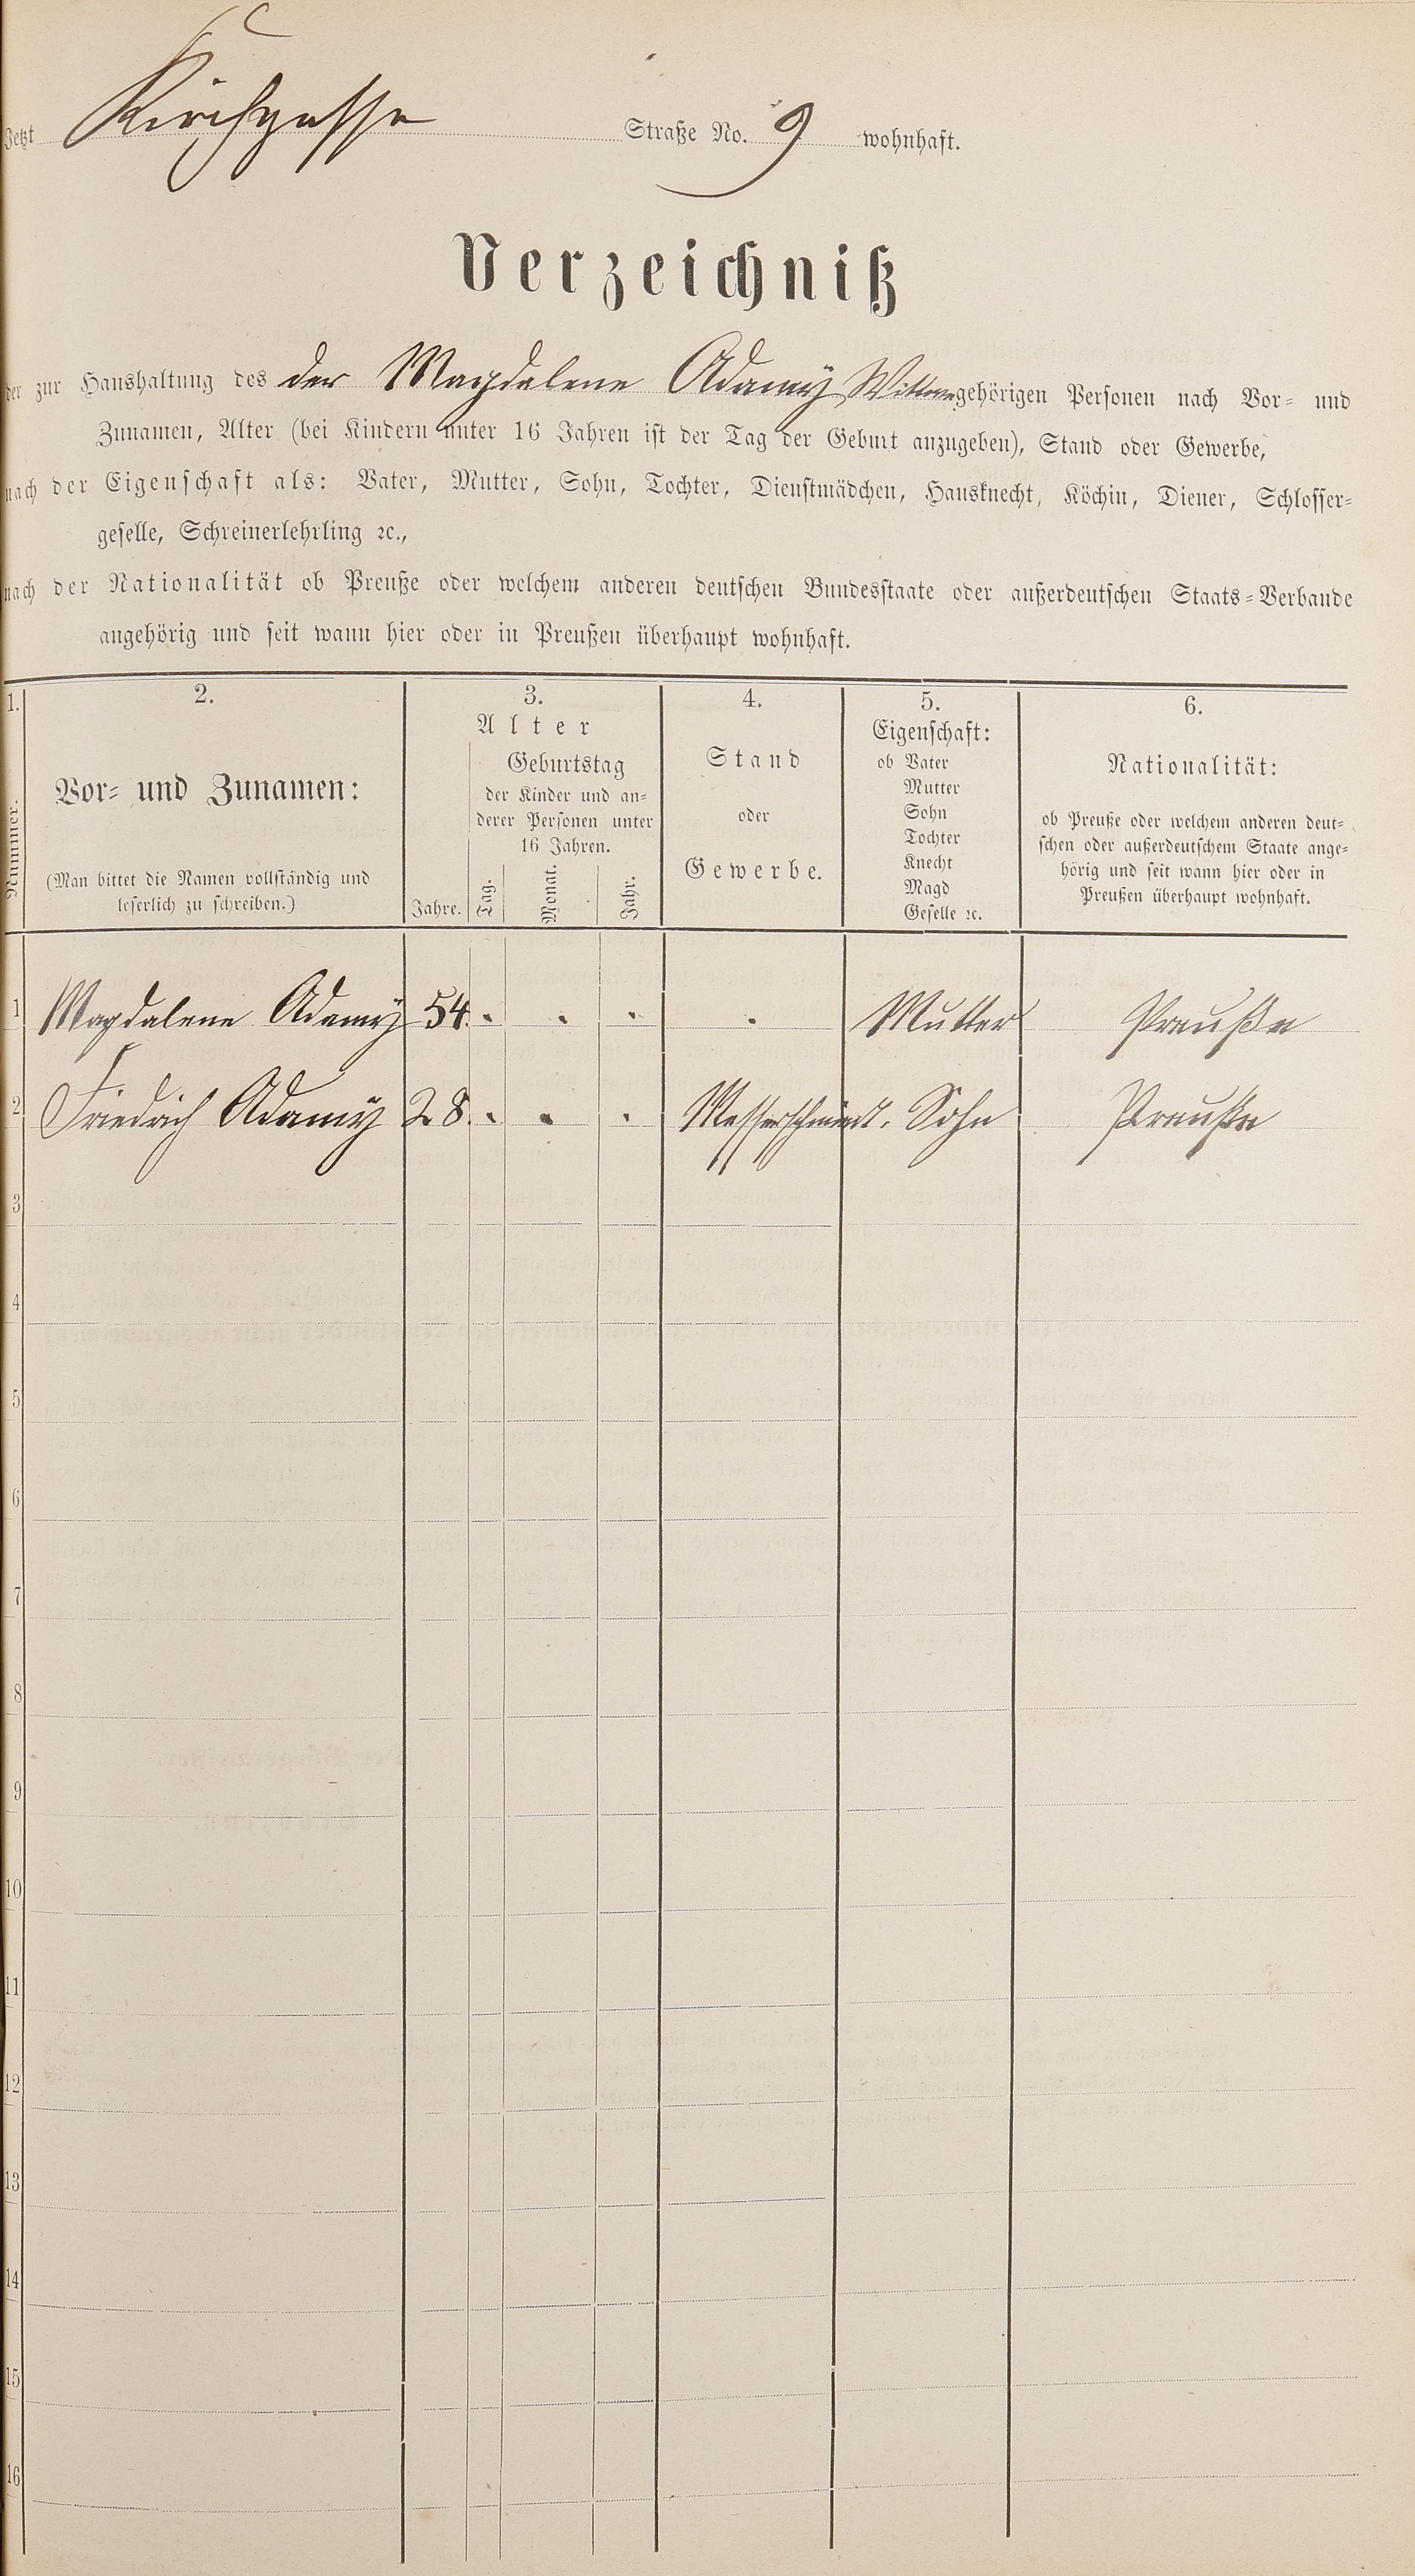 Jetzt Kirchgasse Straße No. 9 wohnhaft.
Verzeichniß
der zur Haushaltung des der Magdalene Adamÿ Wittwe gehörigen Personen nach Vor- und
Zunamen, Alter (bei Kindern unter 16 Jahren ist der Tag der Geburt anzugeben), Stand oder Gewerbe,
nach der Eigenschaft als: Vater, Mutter, Sohn, Tochter, Dienstmädchen, Hausknecht, Köchin, Diener, Schlosser-
geselle, Schreinerlehrling ꝛc.,
nach der Nationalität ob Preuße oder welchem anderen deutschen Bundesstaate oder außerdeutschen Staats-Verbande
angehörig und seit wann hier oder in Preußen überhaupt wohnhaft.
1.
Nummer.
2.
Vor- und Zunamen:
(Man bittet die Namen vollständig und
leserlich zu schreiben.)
3.
Alter
Jahre.
Geburtstag
der Kinder und an-
derer Personen unter
16 Jahren.
Tag.
Monat.
Jahr.
4.
Stand
oder
Gewerbe.
5.
Eigenschaft:
ob Vater
Mutter
Sohn
Tochter
Knecht
Magd
Geselle ꝛc.
6.
Nationalität:
ob Preuße oder welchem anderen deut-
schen oder außerdeutschem Staate ange-
hörig und seit wann hier oder in
Preußen überhaupt wohnhaft.
1 Magdalene Adamÿ 54. . . . . Mutter Preuße
2 Friedrich Adamÿ 28. . . . Messerschmiedt. Sohn Preuße
3
4
5
6
7
8
9
10
11
12
13
14
15
16